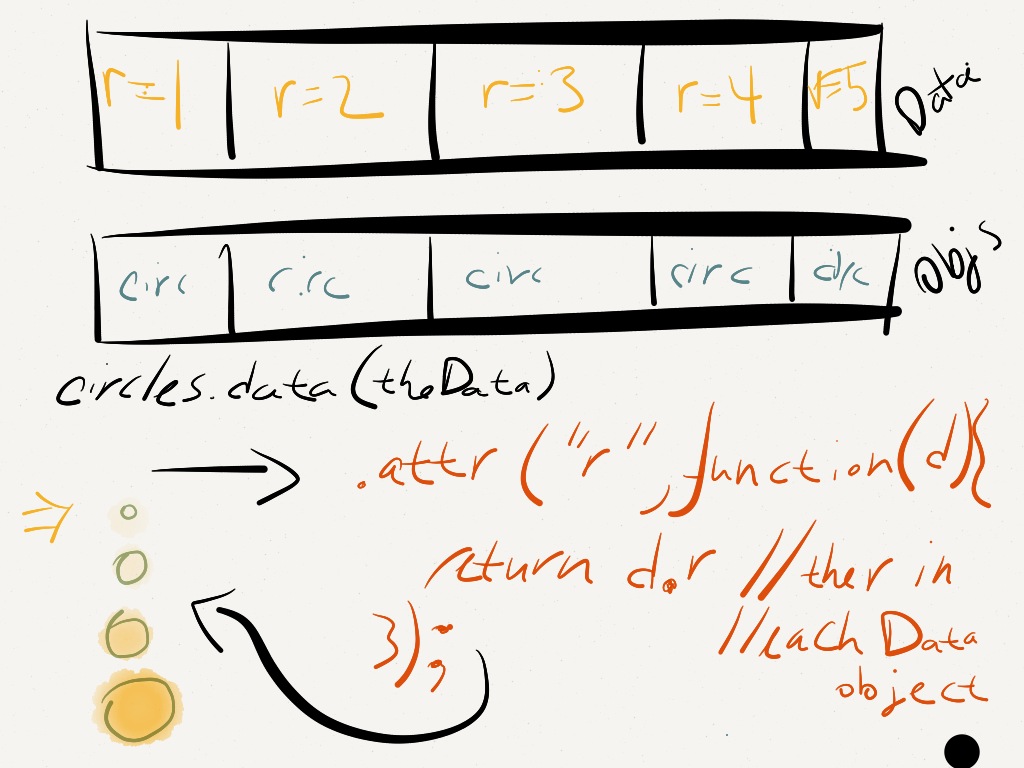 r=1 r=2 r=3 r=4 r=5 Data
circ circ circ circ circ Objs
circles.data(theData)
.attr("r", function(d){
return d.r //the r in
//each Data
object
});